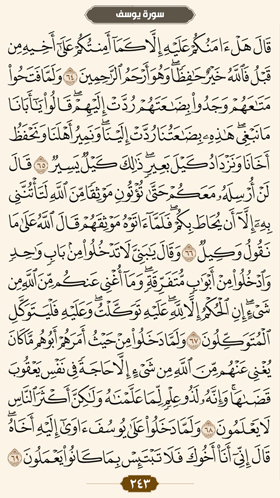 سورة يوسف
قَالَ هَلْ ءَامَنُكُمْ عَلَيْهِ إِلَّا كَمَآ أَمِنتُكُمْ عَلَىٰٓ أَخِيهِ مِن
قَبْلُ فَٱللَّهُ خَيْرٌ حَٰفِظًا وَهُوَ أَرْحَمُ ٱلرَّٰحِمِينَ ٦٤ وَلَمَّا فَتَحُوا۟
مَتَٰعَهُمْ وَجَدُوا۟ بِضَٰعَتَهُمْ رُدَّتْ إِلَيْهِمْ قَالُوا۟ يَٰٓأَبَانَا
مَا نَبْغِى هَٰذِهِۦ بِضَٰعَتُنَا رُدَّتْ إِلَيْنَا وَنَمِيرُ أَهْلَنَا وَنَحْفَظُ
أَخَانَا وَنَزْدَادُ كَيْلَ بَعِيرٍ ذَٰلِكَ كَيْلٌ يَسِيرٌ ٦٥ قَالَ
لَنْ أُرْسِلَهُۥ مَعَكُمْ حَتَّىٰ تُؤْتُونِ مَوْثِقًا مِّنَ ٱللَّهِ لَتَأْتُنَّنِى
بِهِۦٓ إِلَّآ أَن يُحَاطَ بِكُمْ فَلَمَّآ ءَاتَوْهُ مَوْثِقَهُمْ قَالَ ٱللَّهُ عَلَىٰ مَا
نَقُولُ وَكِيلٌ ٦٦ وَقَالَ يَٰبَنِىَّ لَا تَدْخُلُوا۟ مِنۢ بَابٍ وَٰحِدٍ
وَٱدْخُلُوا۟ مِنْ أَبْوَٰبٍ مُّتَفَرِّقَةٍ وَمَآ أُغْنِى عَنكُم مِّنَ ٱللَّهِ مِن
شَىْءٍ إِنِ ٱلْحُكْمُ إِلَّا لِلَّهِ عَلَيْهِ تَوَكَّلْتُ وَعَلَيْهِ فَلْيَتَوَكَّلِ
ٱلْمُتَوَكِّلُونَ ٦٧ وَلَمَّا دَخَلُوا۟ مِنْ حَيْثُ أَمَرَهُمْ أَبُوهُم مَّا كَانَ
يُغْنِى عَنْهُم مِّنَ ٱللَّهِ مِن شَىْءٍ إِلَّا حَاجَةً فِى نَفْسِ يَعْقُوبَ
قَضَىٰهَا وَإِنَّهُۥ لَذُو عِلْمٍ لِّمَا عَلَّمْنَٰهُ وَلَٰكِنَّ أَكْثَرَ ٱلنَّاسِ
لَا يَعْلَمُونَ ٦٨ وَلَمَّا دَخَلُوا۟ عَلَىٰ يُوسُفَ ءَاوَىٰٓ إِلَيْهِ أَخَاهُ
قَالَ إِنِّىٓ أَنَا۠ أَخُوكَ فَلَا تَبْتَئِسْ بِمَا كَانُوا۟ يَعْمَلُونَ ٦٩
٢٤٣